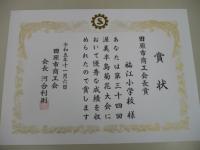 賞状
田原市商工会長賞
福江小学校様
あなたは第三十四回
渥美半島菊花大会に
おいて優秀な成績を収
められたので賞します
令和五年十一月六日
田原市商工会
会長 河合利則